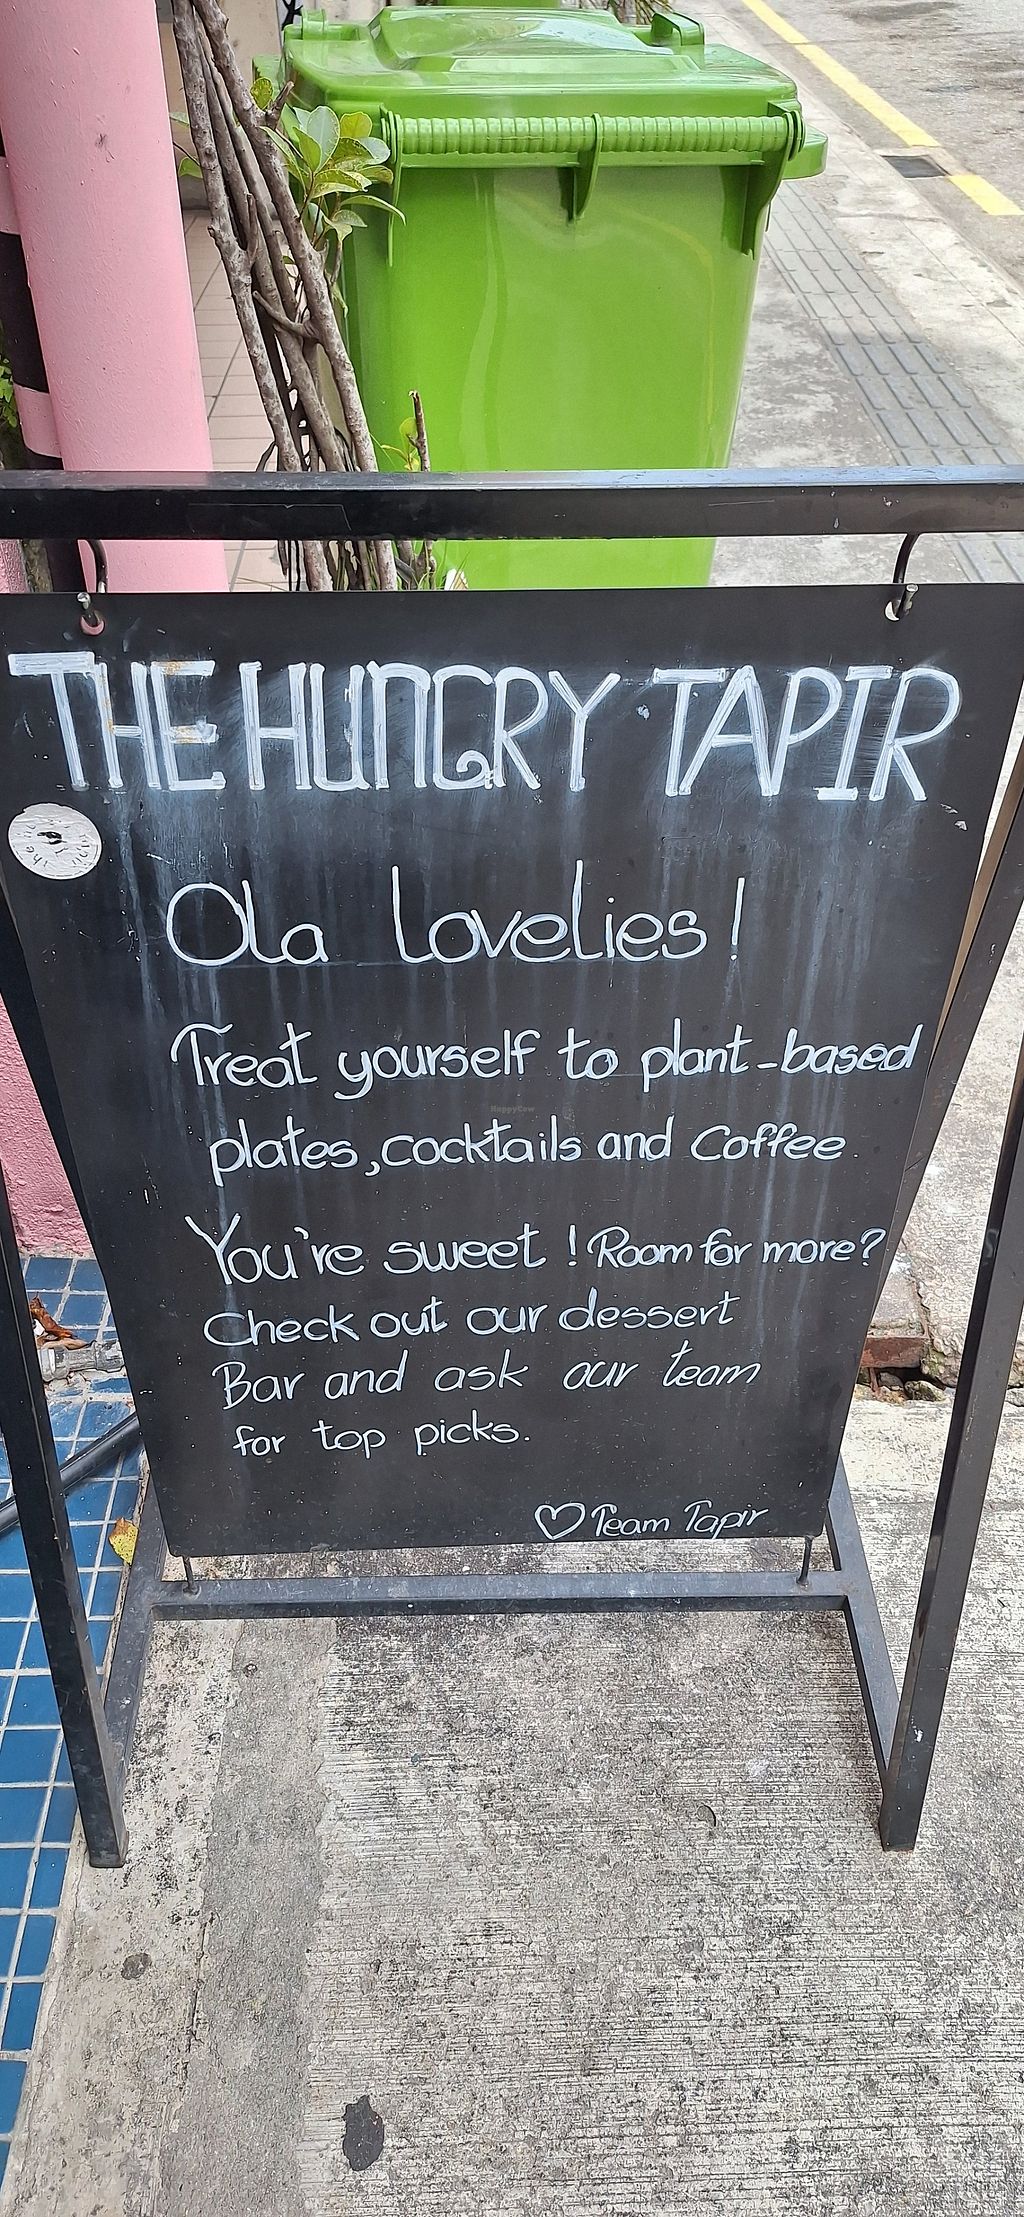 THE HUNGRY TAPIR
Ola lovelies!
Treat yourself to plant-based
plates, cocktails and Coffee
You're sweet! Room for more?
Check out our dessert
Bar and ask our team
for top picks.
♡ Team Tapir
HappyCow